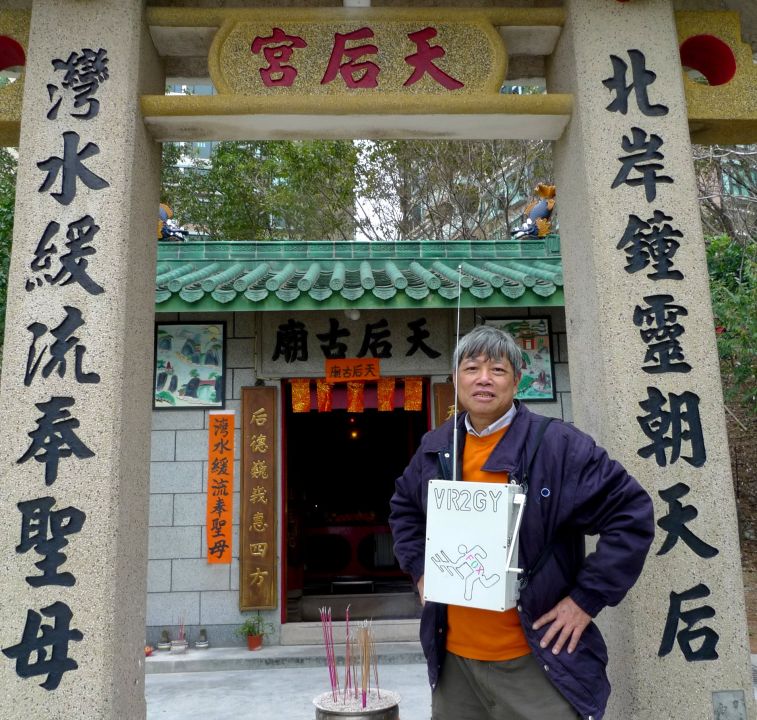 天后宮
北岸鐘靈朝天后
灣水緩流奉聖母
天后古廟
天后古廟
天
后德巍峩惠四方
灣水緩流奉聖母
VR2GY
FOX